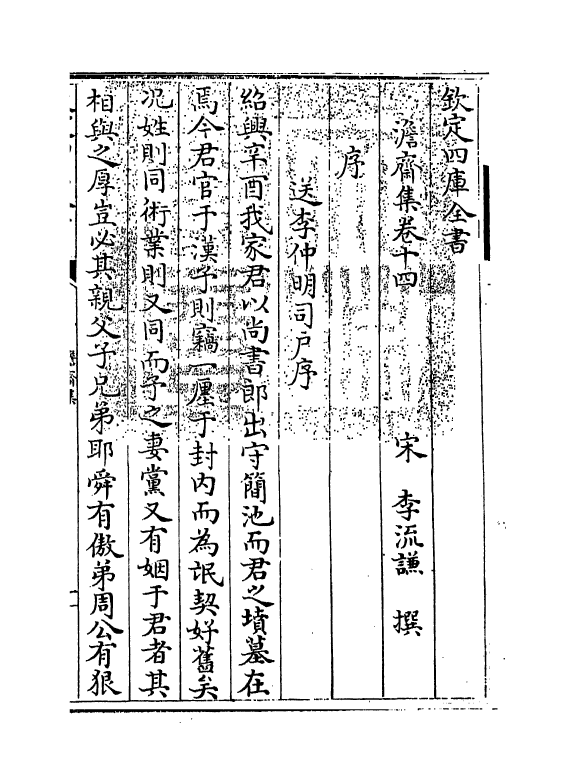 欽定四庫全書
澹齋集卷十四
宋 李流謙 撰
序
送李仲明司戶序
紹興辛酉我家君以尚書郎出守簡池而君之墳墓在
焉今君官于漢予則竊一廛于封内而為氓契好舊矣
況姓則同術業則又同而予之妻黨又有姻于君者其
相與之厚豈必其親父子兄弟耶舜有傲弟周公有狠